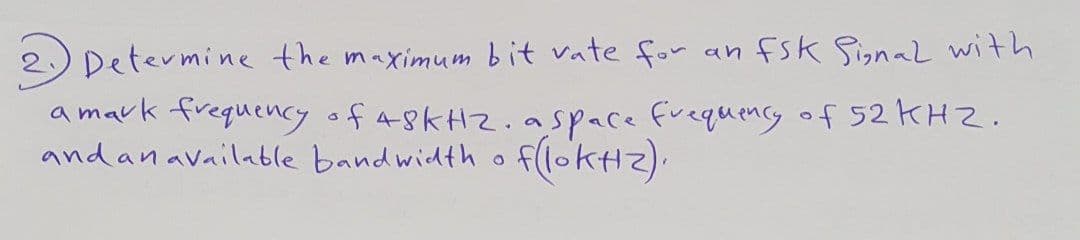 2.) Determine the maximum bit rate for an fsk Signal with
a mark frequency of 48kHz. a space frequency of 52 KHZ.
and an available bandwidth of (10kHz).